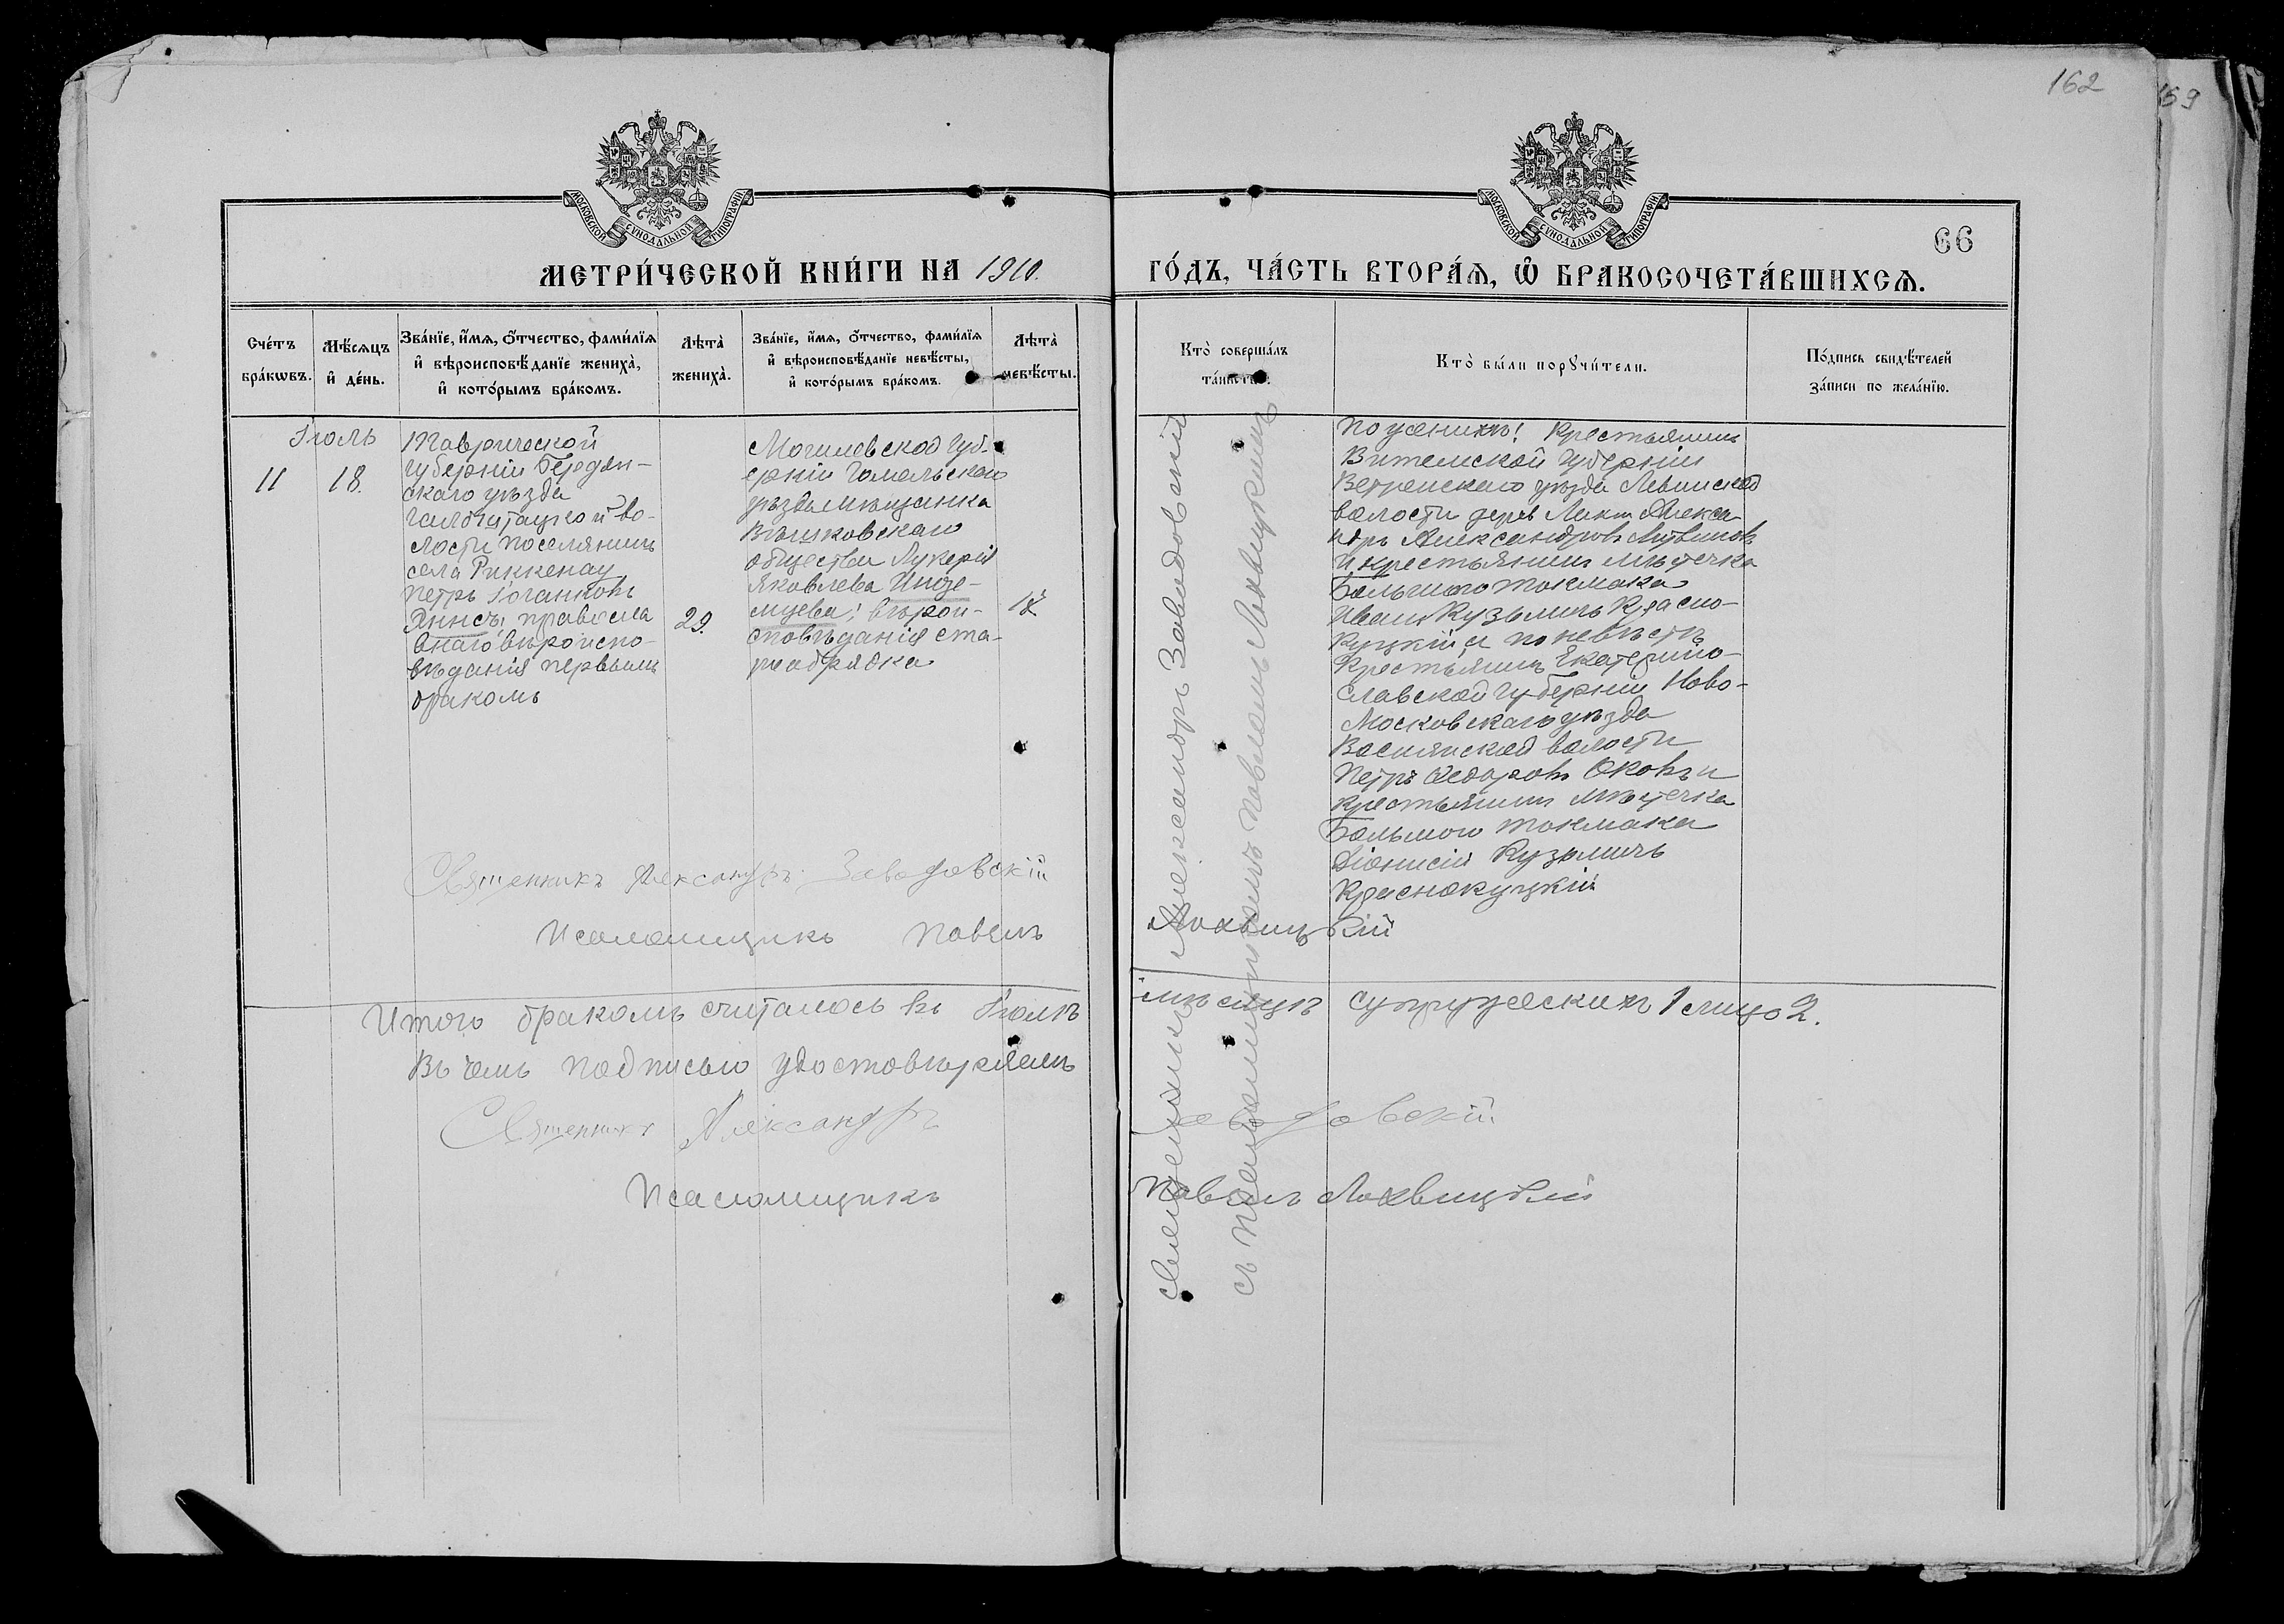 162
159
МОСКОВСКОЙ СѴНОДАЛЬНОЙ ТИПОГРАФІИ
МОСКОВСКОЙ СѴНОДАЛЬНОЙ ТИПОГРАФІИ
66
МЕТРИ́ЧЕСКОЙ КНИ́ГИ НА 1910.
ГО́ДЪ, ЧА́СТЬ ВТОРА́Ѧ, Ѿ БРАКОСОЧЕТА́ВШИХСѦ.
Сче́тъ
бра́кѡвъ.
Мѣ́сѧцъ
и҆ де́нь.
Зва́нїе, и҆́мѧ, ѻ҆́тчество, фами́лїѧ
и҆ вѣроисповѣ́данїе жениха̀,
и҆ кото́рымъ бра́комъ.
Лѣта̀
жениха̀.
Зва́нїе, и҆́мѧ, ѻ҆́тчество, фами́лїѧ
и҆ вѣроисповѣ́данїе невѣ́сты,
и҆ кото́рымъ бра́комъ.
Лѣта̀
невѣ́сты.
Кто̀ соверша́лъ
та́инство.
Кто̀ бы́ли порꙋчи́тели.
По́дпись свидѣ́телей
за́писи по жела́нїю.
Іюль
11
18.
Таврической
губерніи Бердян-
скаго уѣзда
во-
лости поселянинъ
села Риккенау
Петръ Іогановъ
Яннсъ, правосла
внаго вѣроиспо-
вѣданія первымъ
бракомъ
29.
Могилевской губ-
ерніи Гомельскаго
уѣзда мѣщанка
общества Лукерія
Яковлева Инозе-
мцева; вѣрои-
сповѣданія ста-
рообрядка
Священникъ Александръ Заводовскій
съ псаломщикомъ Павломъ Лохвицкимъ
По женихѣ: Крестьянинъ
Витебской губерніи
уѣзда
волости дерев Алекса-
ндръ Александровъ Литвиновъ
и крестьянинъ мѣстечка
Большого Токмака
Иванъ Кузьмичъ Красно-
куцкій а по невѣстѣ
Крестьянинъ Екатерино-
славской губерніи Ново-
Московскаго уѣзда
волости
Петръ Федоровъ и
крестьянинъ мѣстечка
Большого Токмака
Діонисій Кузьмичъ
Краснокуцкій
Священникъ Александръ Заводовскій
Псаломщикъ Павелъ Лохвицкій
Итого бракомъ считалось въ Іюлѣ мѣсяцѣ супружескихъ 1 лицо 2.
Въ чемъ подписью удостовѣряемъ
Священникъ Александръ Заводовскій
Псаломщикъ Павелъ Лохвицкій